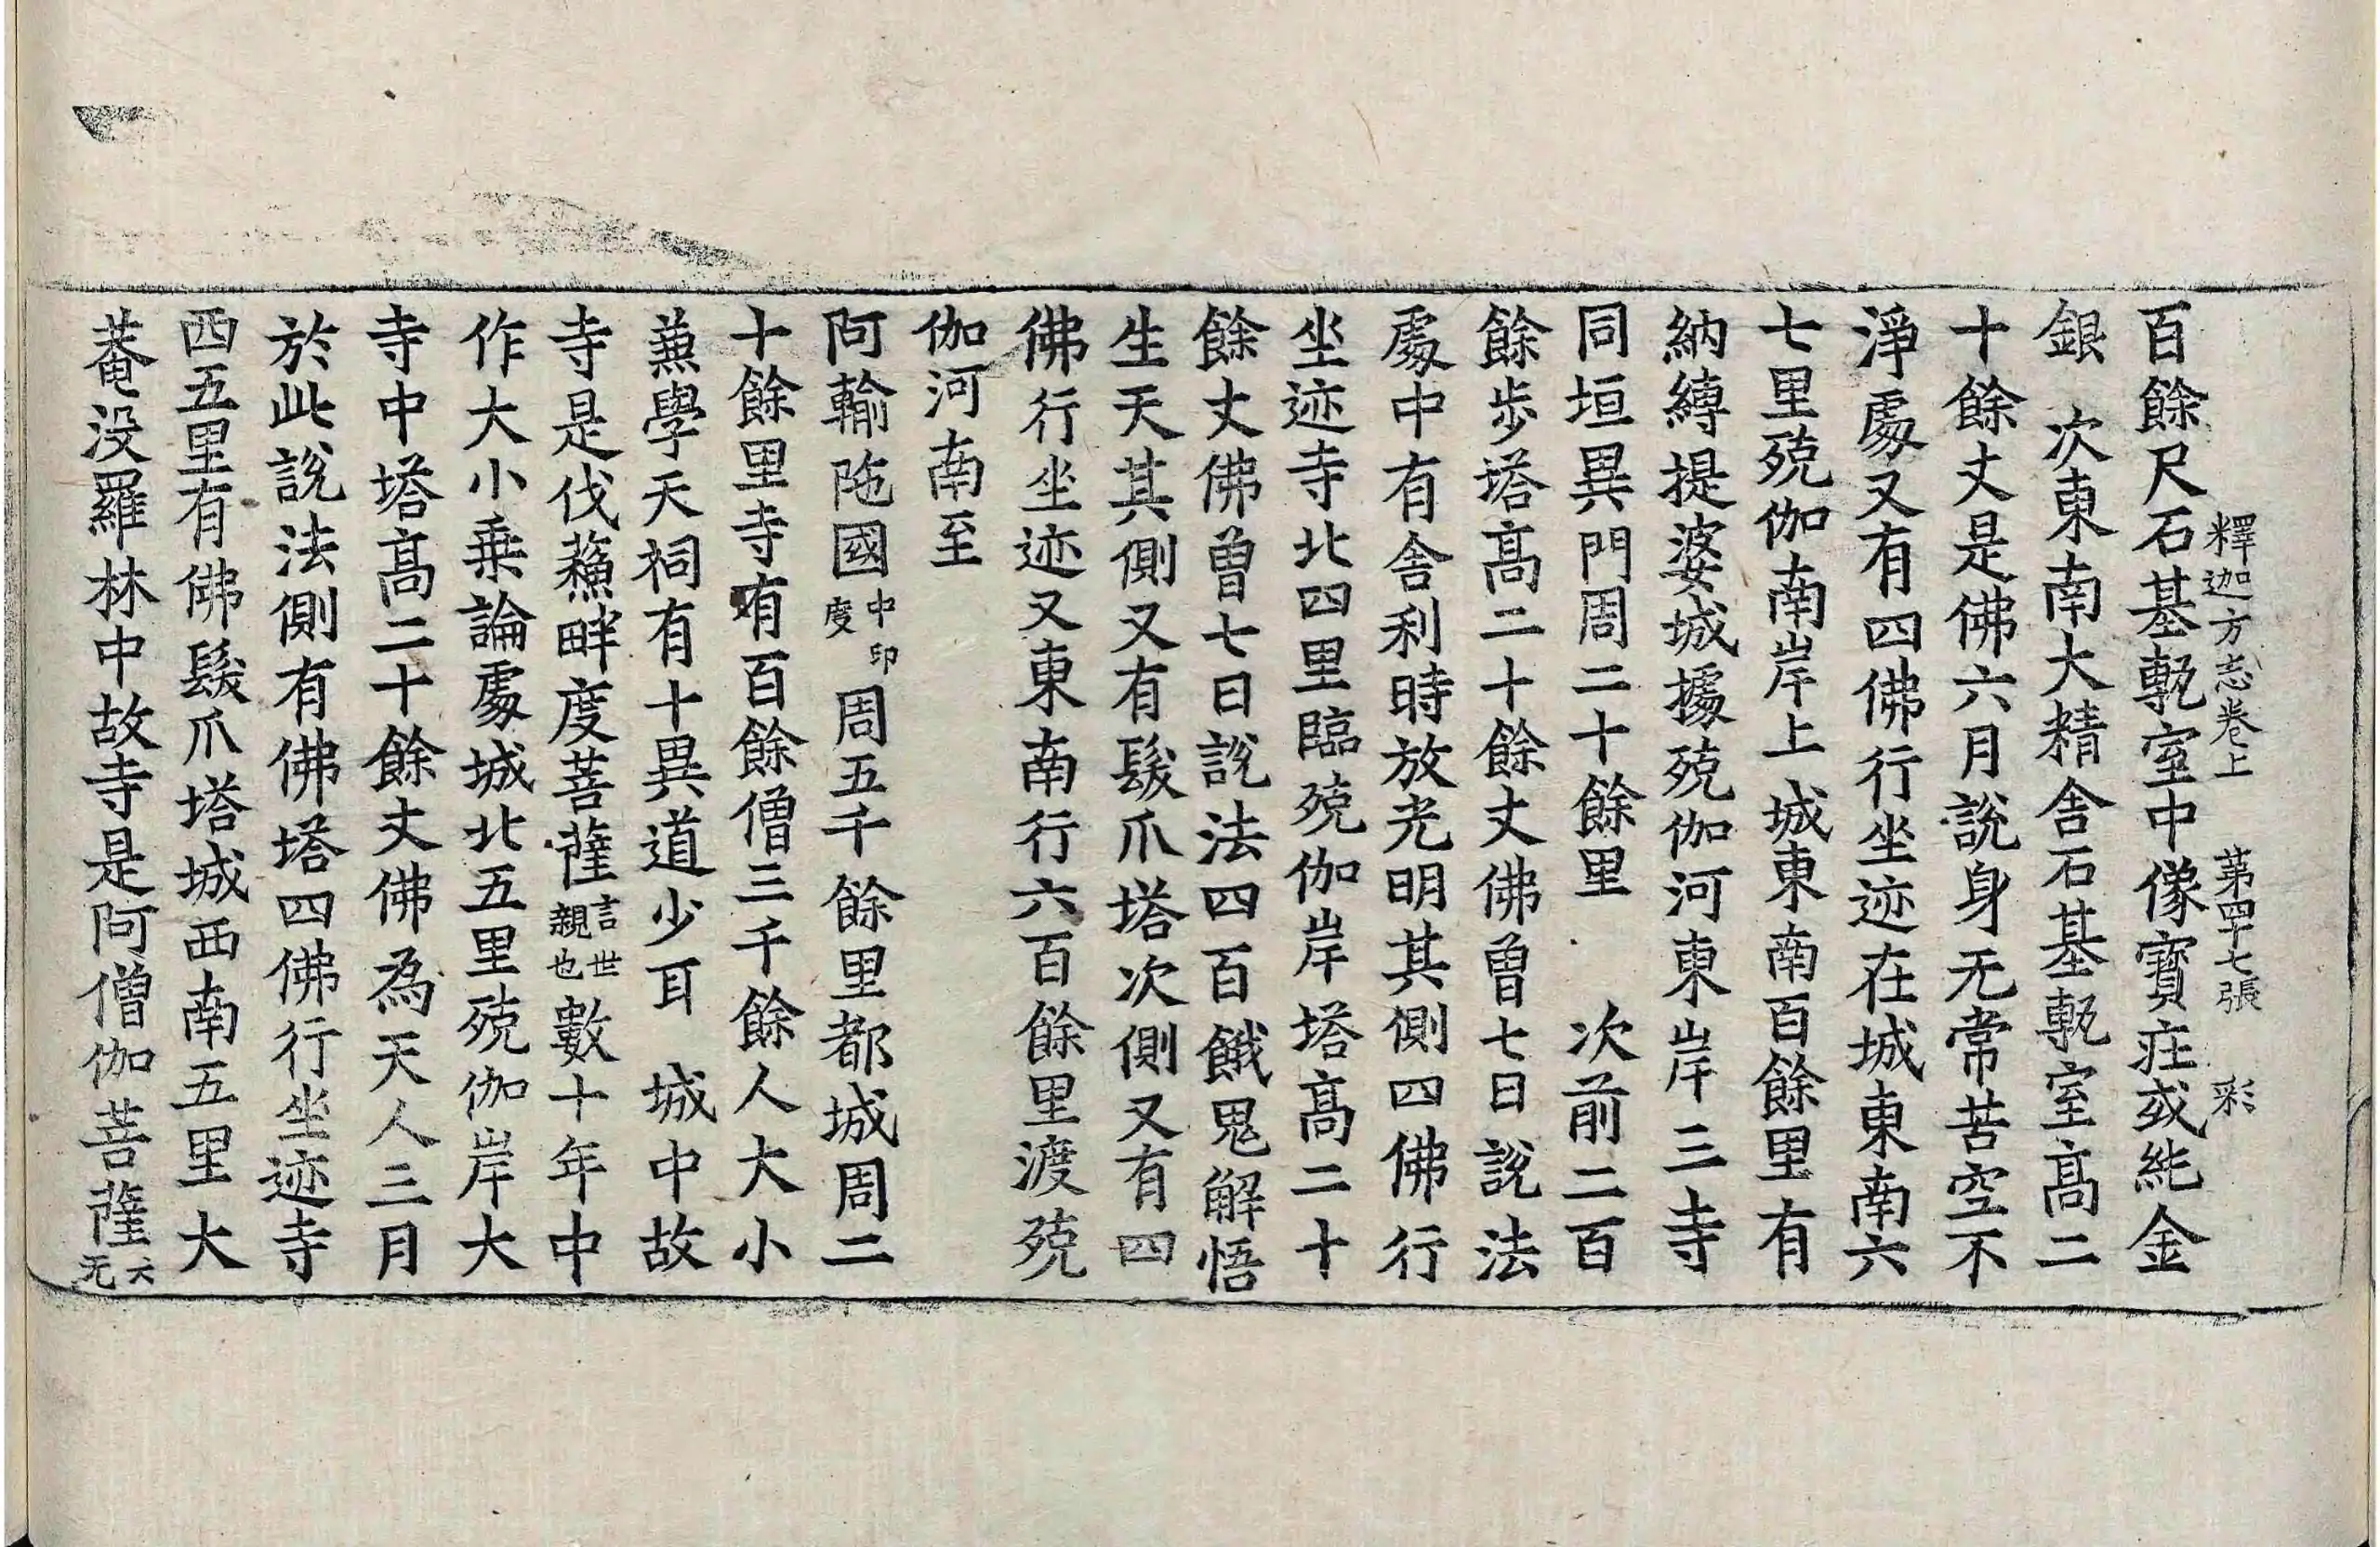 釋迦方志卷上　第四十七張　彩
百餘尺石基甎室中像寶疰或純金
銀　次東南大精舍石基甎室高二
十餘丈是佛六月說身无常苦空不
淨處又有四佛行坐迹在城東南六
七里殑伽南岸上城東南百餘里有
納縛提婆城據殑伽河東岸三寺
同垣異門周二十餘里　次前二百
餘步塔高二十餘丈佛曾七日說法
處中有舍利時放光明其側四佛行
坐迹寺北四里臨殑伽岸塔高二十
餘丈佛曾七日說法四百餓鬼解悟
生天其側又有髮爪塔次側又有四
佛行坐迹又東南行六百餘里渡殑
伽河南至
阿輸陁國中印度周五千餘里都城周二
十餘里寺有百餘僧三千餘人大小
兼學天祠有十異道少耳　城中故
寺是伐蘓畔度菩薩言世親也數十年中
作大小乗論處城北五里殑伽岸大
寺中塔高二十餘丈佛為天人三月
於此說法側有佛塔四佛行坐迹寺
西五里有佛髮爪塔城西南五里大
菴没羅林中故寺是阿僧伽菩薩云无